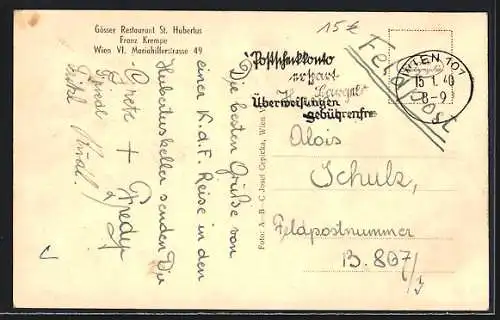 Gösser Restaurant St. Hubertus
Franz Krempe
Wien VI. Mariahilferstrasse 49
15 €
Postscheckkonto
erspart
Überweisungen
gebührenfrei
WIEN 101
15. 4. 40
8-9
Die besten Grüße von
einer K.d.F. Reise in den
Hubertuskeller senden Dir
Grete + Fredy
Foto: A-B-C Josef Cepicka, Wien
Alois
Schulz,
Feldpostnummer
B. 807/J